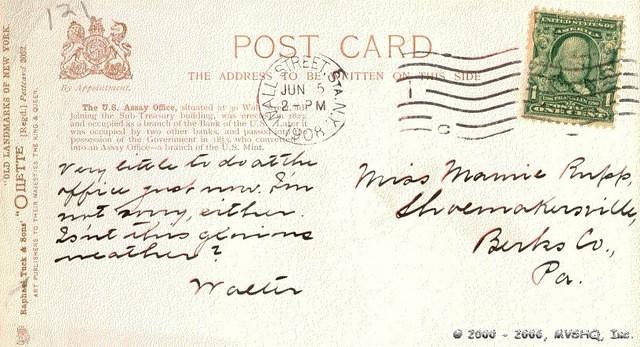 121
By Appointment.
POST CARD
THE ADDRESS TO BE WRITTEN ON THIS SIDE
"OLD LANDMARKS OF NEW YORK."
Raphael Tuck & Sons' "OILETTE" [Regd.] Postcard 2052.
ART PUBLISHERS TO THEIR MAJESTIES THE KING & QUEEN.
WALL STREET STA. N.Y.
JUN 5
2 PM
1908
UNITED STATES OF AMERICA
The U.S. Assay Office, situated at 30 Wall
joining the Sub-Treasury building, was erected in 1823
and occupied as a branch of the Bank of the U.S. Later it
was occupied by two other banks, and passed
possession of the Government in 1853, who converted
into an Assay Office—a branch of the U.S. Mint.
Very little to do at the
office just now. I'm
not sorry, either.
Isn't this glorious
weather?
Walter
Miss Mamie Rupp,
Shoemakersville,
Berks Co.,
Pa.
© 2000 - 2006, MVSHQ, Inc.